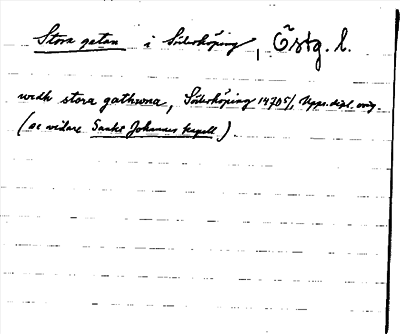 Stora gatan i Söderköping, Östg. l.
wedh stora gathwna, Söderköping 1470 5/1 Upps. dipl. orig.
(se vidare Sankt Johannes kapell)